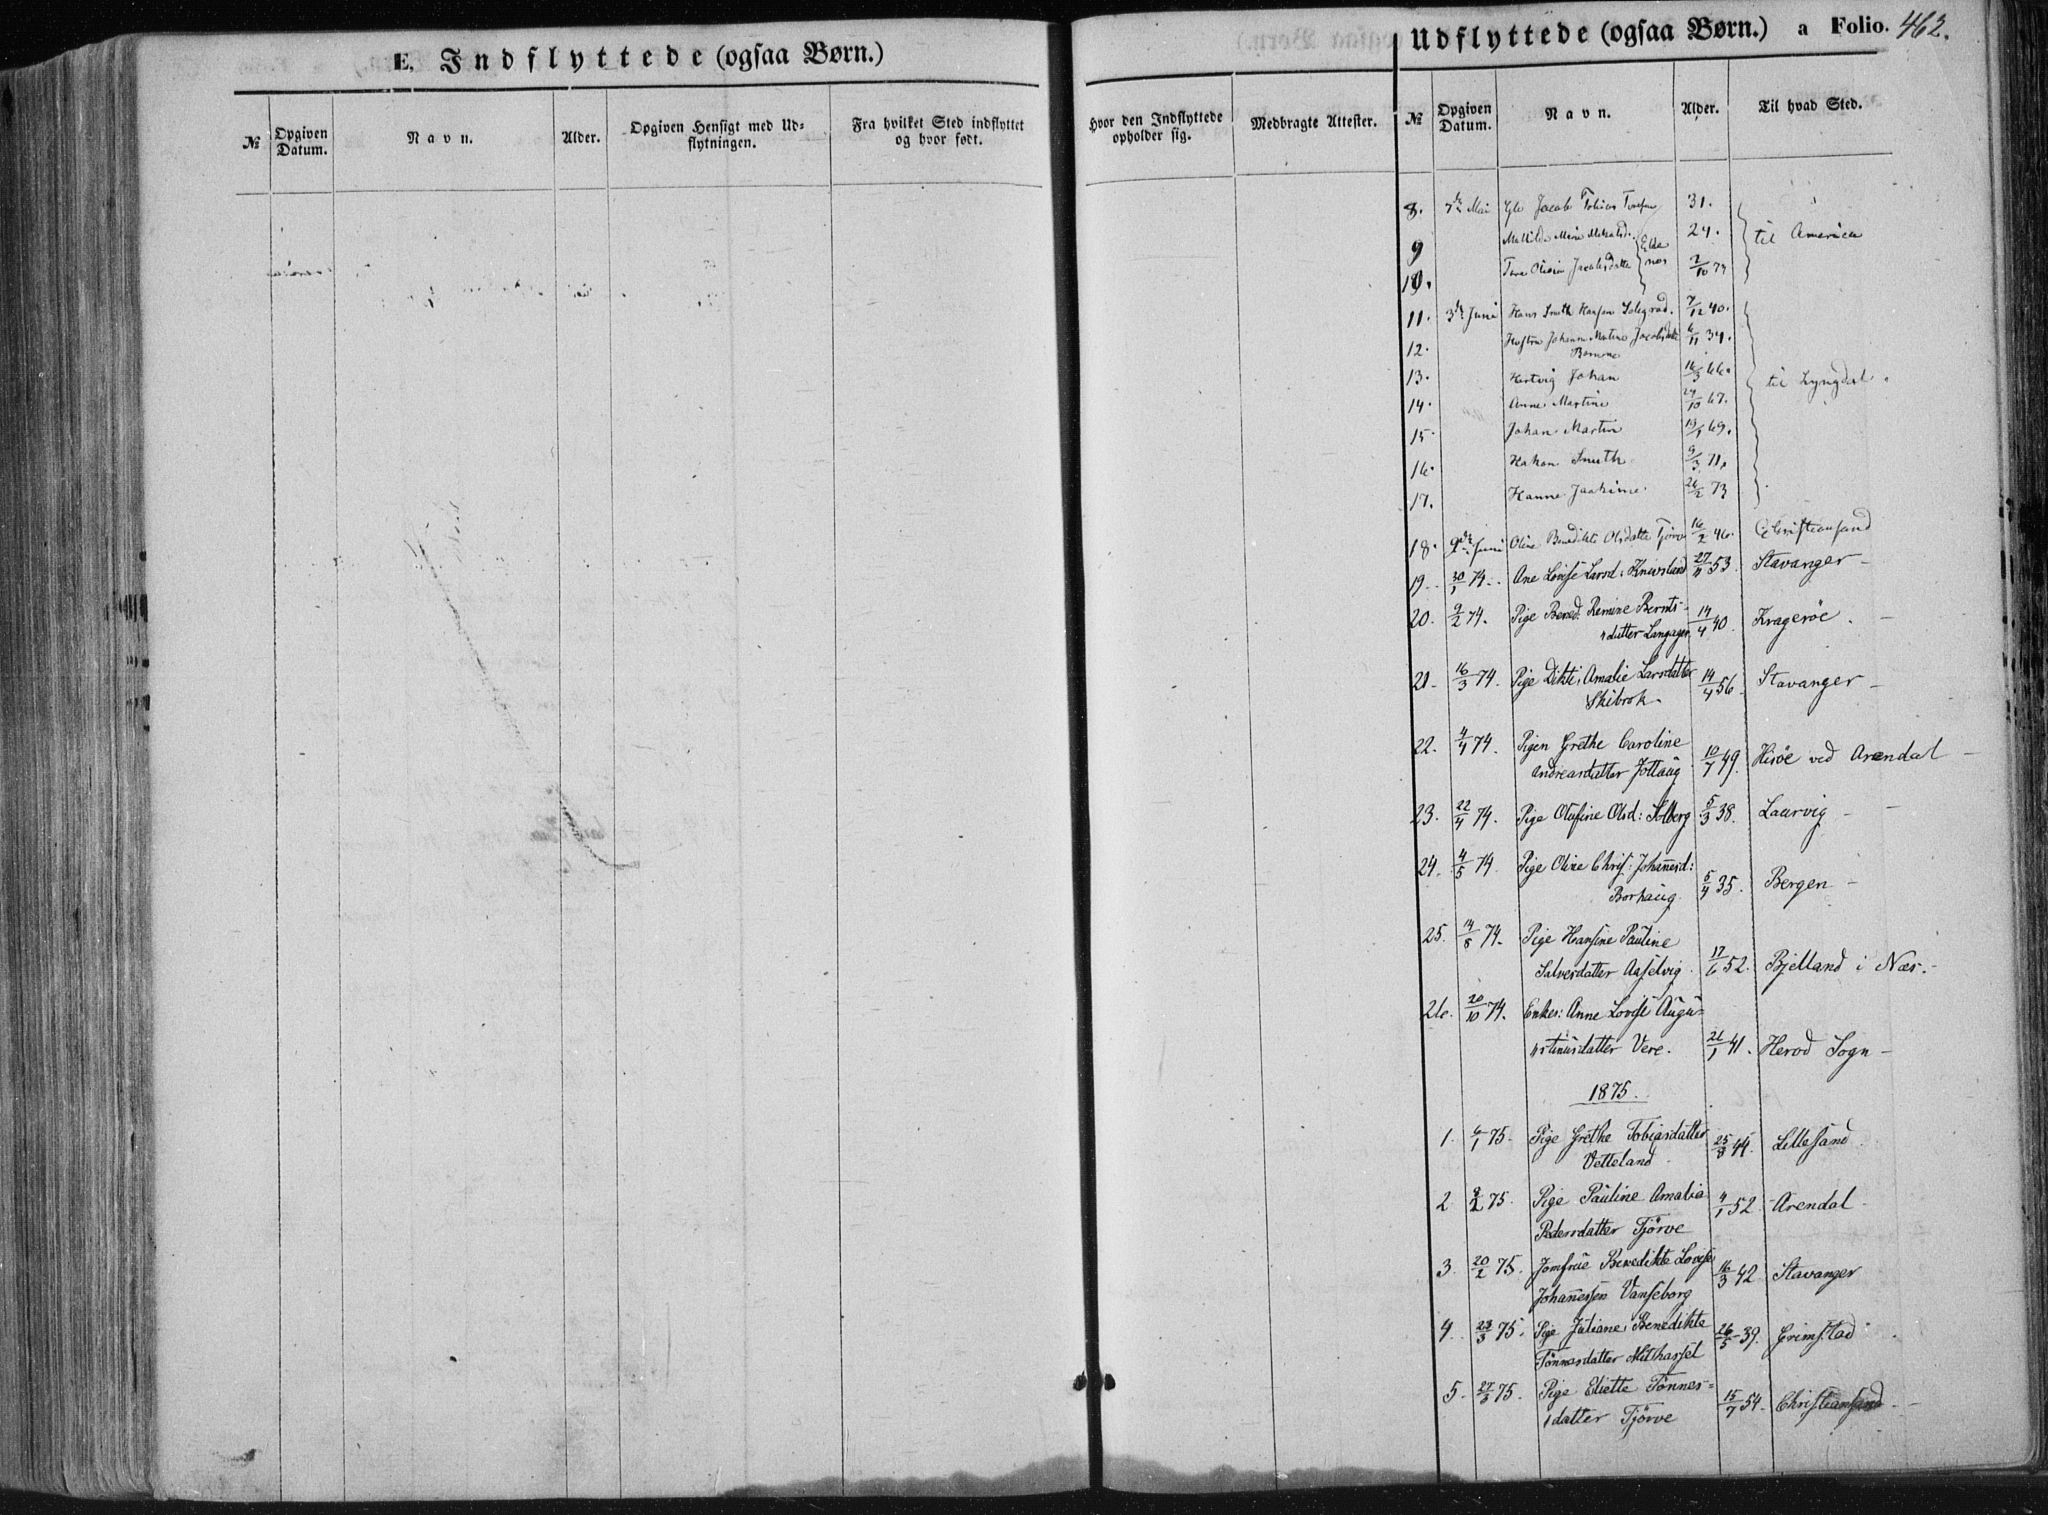 E. Indflyttede (ogsaa Børn.)
Udflyttede (ogsaa Børn.) a Folio. 462.
№ Opgiven Datum. Navn. Alder. Opgiven Hensigt med Ud= flytningen. Fra hvilket Sted indflyttet og hvor født. Hvor den Indflyttede opholder sig. Medbragte Attester. № Opgiven Datum. Navn. Alder. Til hvad Sted.
8. 7de Mai Jacob Tobias 31.
9 24. til America
10. 2/10 73
11. 3de Juni Hans Smith Hansen 7/12 40.
12. Johanne Martine Jacobsdatter 6/11 34.
Børnene
13. Hartvig Johan 16/3 66. til Lyngdal.
14. Anne Martine 24/10 67.
15. Johan Martin 69.
16. Hakon Smith 9/3 71.
17. Hanne Joakime 26/2 73
18. 9de Juni Oline Benedikte Olsdatter Tjörve 16/2 46. Christiansand
19. 30/1 74. Ane Lovise Larsd: 53. Stavanger -
20. 9/2 74. Pige Bened. Remine Bernts-
datter Langager 14/4 40. Kragerøe. -
21. 16/3 74. Pige Dikte Amalie Larsdatter 14/4 56. Stavanger -
Skibrok.
22. 4/4 74. Pigen Grethe Caroline
Andreasdatter Jöllaug 10/7 49. Hisøe ved Arendal -
23. 22/4 74. Pige Olufine Olsd: Solberg 5/3 38. Laurvig -
24. 4/5 74. Pige Oline Chris: Johannesd:
Borhaug. 5/4 35. Bergen -
25. 14/8 74. Pige Hansine Pauline
Salvesdatter Aaselvig. 17/6 52. Bjelland i Næs. -
26. 20/10 74. Enke: Anne Lovise Augu=
stinusdatter Vere. 21/1 41. Herod Sogn -
1875.
1. 6/1 75. Pige Grethe Tobiasdatter
Vetteland 25/8 44. Lillesand
2. 9/2 75. Pige Pauline Amalia
Pedersdatter Tjörve 4/1 52. Arendal
3. 20/2 75. Jomfrue Benedikte Lovise
Johannessen Vanseborg 16/3 42. Stavanger
4. 23/3 75. Pige Juliane Benedikte
Tönnesdatter Midthassel 26/5 39. Grimstad
5. 27/3 75. Pige Eliette Tönnes=
datter Tjörve 15/7 54. Christiansand -